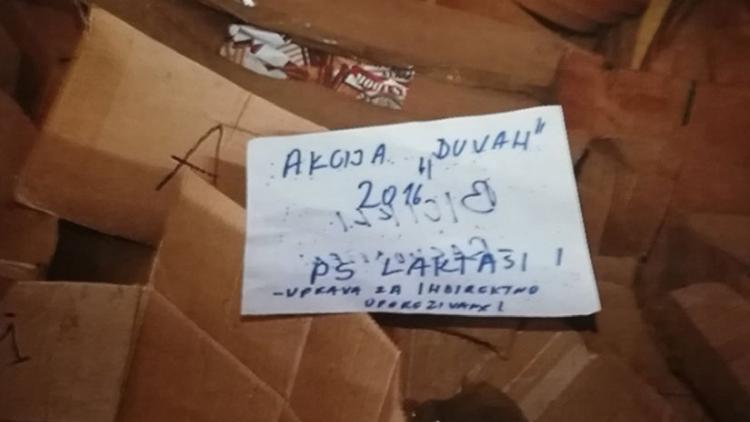 AKCIJA „DUVAN"
2016
PS LAKTAŠI
-UPRAVA ZA INDIREKTNO
OPOREZIVANJE